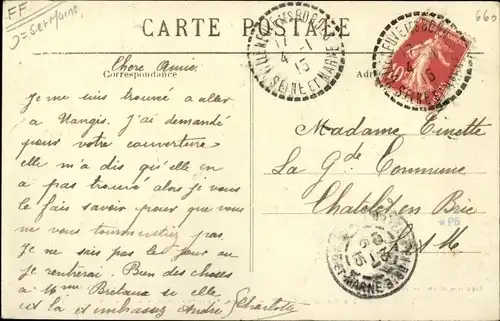 FF
Sert Marne
660
CARTE POSTALE
Correspondance
Adresse
17 -1
4
15
SEINE ET MARNE
4
15
SEINE ET MARNE
Chere Amie
Je me suis trouvé a aller
a Nangis. J'ai demandé
pour votre couverture
elle m'a dis qu'elle en
a pas trouvé alors je vous
le fais savoir pour que vous
ne vous tourmentiez pas.
Je ne sais pas le jour ou
je rentrerai. Bien des choses
a Mme Bretaux si elle
est la d'embrassez André
Charlotte
Madame Tinette
La Gde Commune
Chatelet en Brie
S et M
*P6